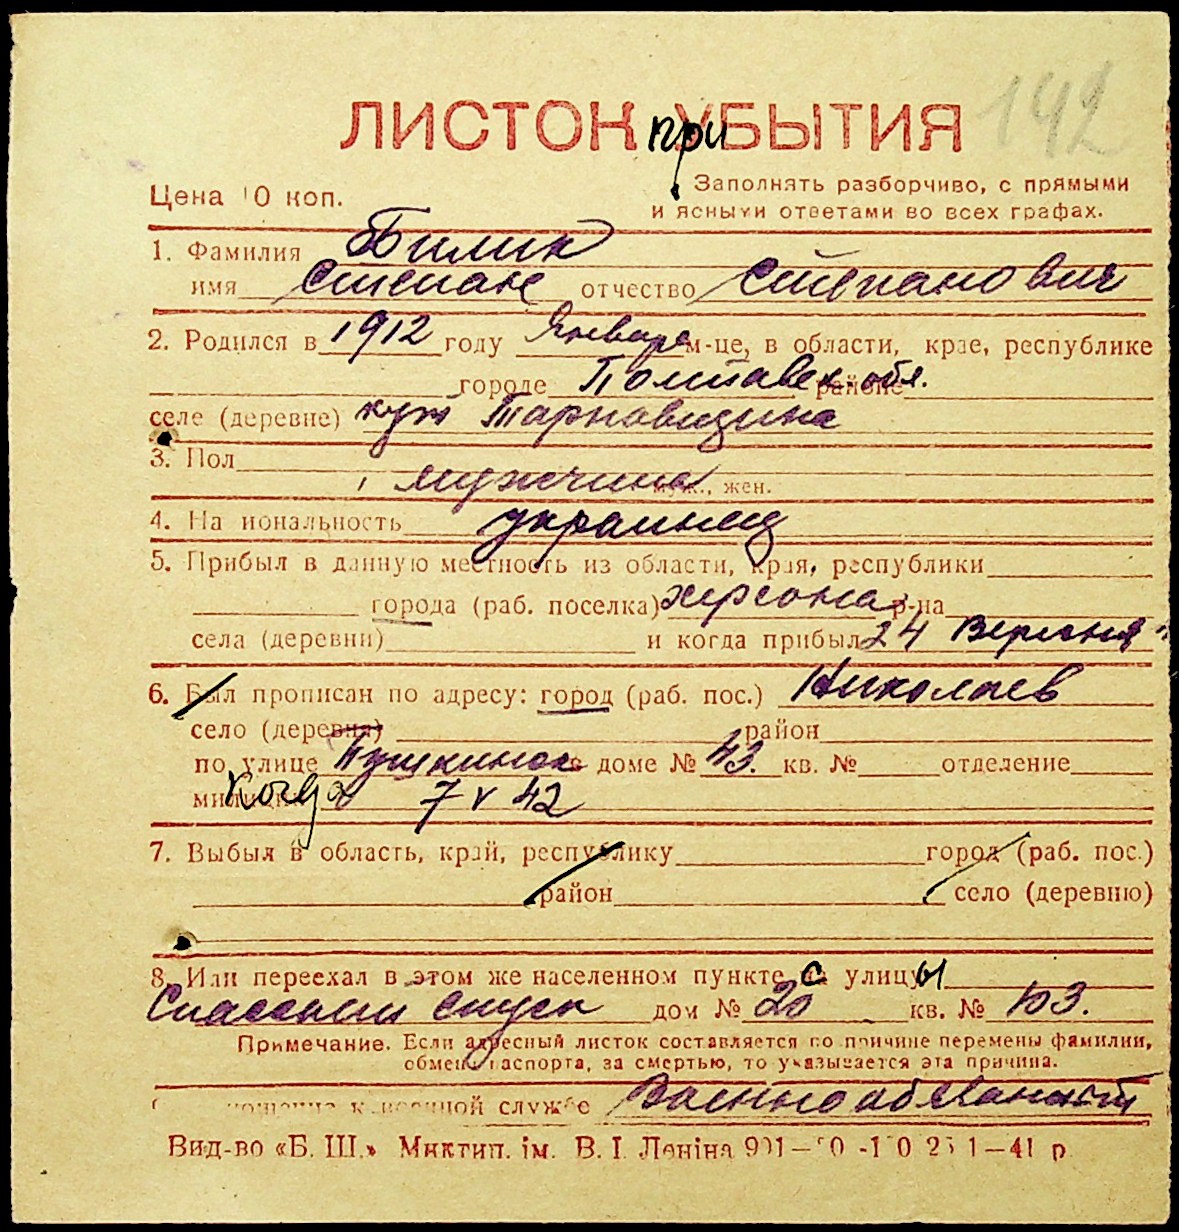 142
ЛИСТОК при УБЫТИЯ
Цена 10 коп.
Заполнять разборчиво, с прямыми
и ясными ответами во всех графах.
1. Фамилия Билик
имя Степан отчество Степанович
2. Родился в 1912 году Январе м-це, в области, крае, республике
городе Полтавск. обл. районе
селе (деревне) хут Тарновщина
3. Пол мужчина муж., жен.
4. Национальность украинец
5. Прибыл в данную местность из области, края, республики
города (раб. поселка) Херсона р-на
села (деревни) и когда прибыл 24 Вересня
6. Был прописан по адресу: город (раб. пос.) Николаев
село (деревня) район
по улице Пушкинск доме № 43. кв. № отделение
милиции когда 7 V 42
7. Выбыл в область, край, республику город (раб. пос.)
район село (деревню)
8. Или переехал в этом же населенном пункте с улицы
Спасский спуск дом № 20 кв. № 103.
Примечание. Если адресный листок составляется по причине перемены фамилии,
обмена паспорта, за смертью, то указывается эта причина.
отношение к военной службе
Вид-во «Б. Ш.» Миктип. ім. В. І. Леніна